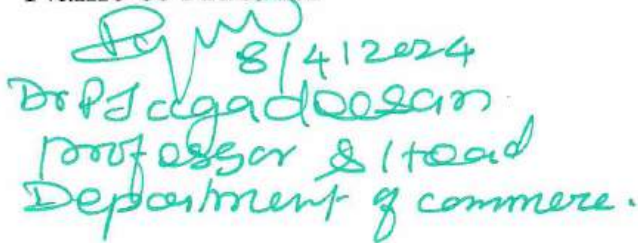 8/4/2024
Dr P Jagadeesan
professor & Head
Department of commere.